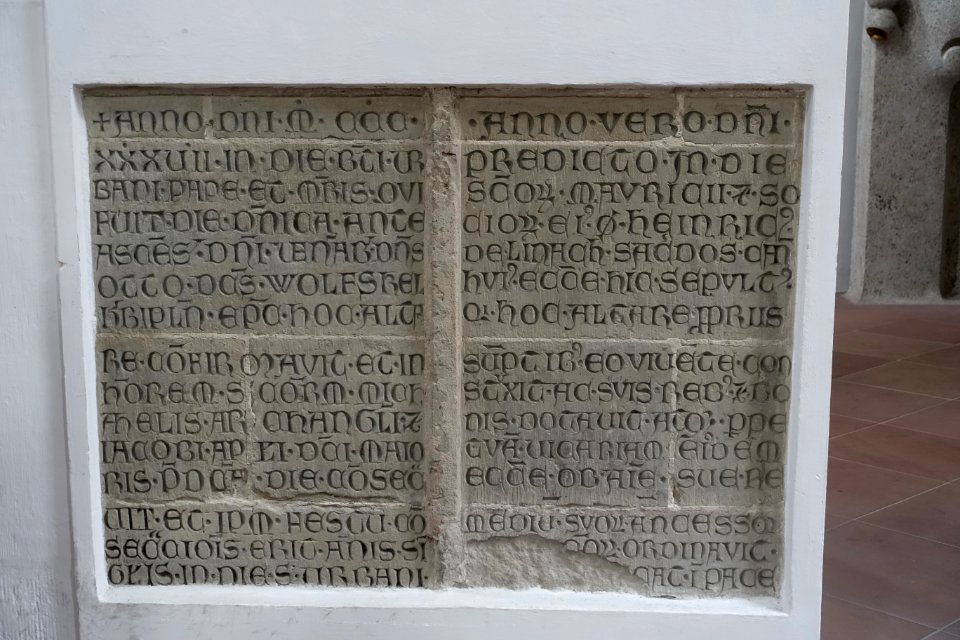 +ANNO·DNI·M·CCC·
XXXVIII·IN·DIE·BTI·UR
BANI·PAPE·ET·MRIS·QVI
FUIT·DIE·DNICA·ANTE
ASCES·DNI·VENAB·DNS
OTTO·DCS·WOLFSKEL
KBIPLN·EPC·HOC·ALTA
RE·COFIRMAVIT·ET·IN
HORE·M·SCORM·MICH
AHELIS·ARCHANGLI·Z
IACOBI·APLI·DCI·MAIO
RIS·PDCA·DIE·COSEC
VIT·ET·IPM·FESTU·CO
SECCIOIS·ERIT·ANIS·SI
GLIS·IN·DIE·S·URBANI·
·ANNO·VERO·DNI·
PREDICTO·IN·DIE
SCOR·MAVRICII·Z·SO
CIOR·EI·HEINRIC
DE·LINACH·SACDOS·CAN
HVI·ECCE·HIC·SEPULT
Q·HOC·ALTARE·PRIUS
SUPT·IB·EO·VIVETE·CON
STXIT·AC·SVIS·REB·Z·BO
NIS·DOTAVIT·ATQ·PPE
TVA·VICARIAM·EID·EM
ECCE·OB·AIE·SUE·RE
MEDIU·SVOR·ANCESSOR
QR·ORDINAVIT·
CAT·I·PACE